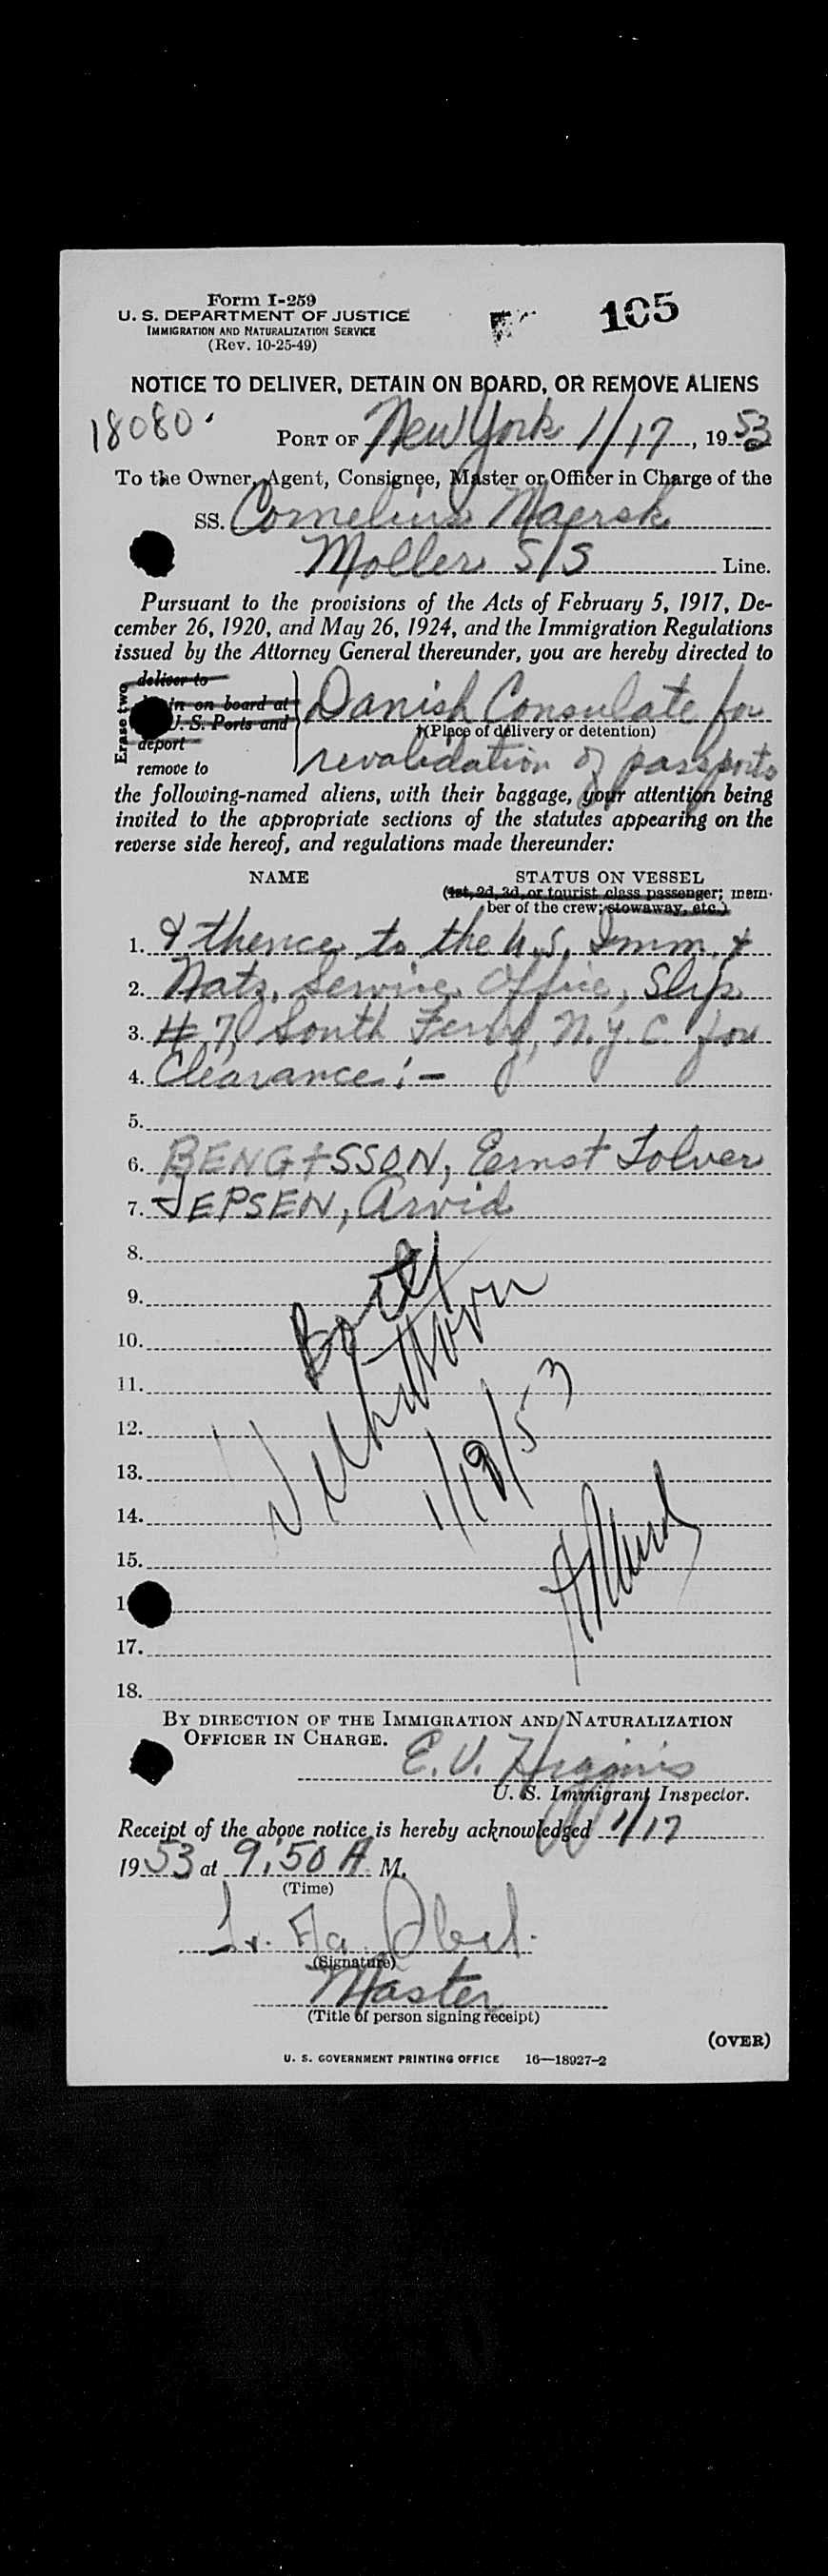 Form I-259
U. S. DEPARTMENT OF JUSTICE
IMMIGRATION AND NATURALIZATION SERVICE
(Rev. 10-25-49)
105
NOTICE TO DELIVER, DETAIN ON BOARD, OR REMOVE ALIENS
18080
PORT OF New York 1/17, 1953
To the Owner, Agent, Consignee, Master or Officer in Charge of the
SS. Cornelius Maersk
Moller S/S Line.
Pursuant to the provisions of the Acts of February 5, 1917, De-
cember 26, 1920, and May 26, 1924, and the Immigration Regulations
issued by the Attorney General thereunder, you are hereby directed to
Erase two
deliver to
in on board at
U. S. Ports and
deport
remove to
Danish Consulate for
(Place of delivery or detention)
revalidation of passports
the following-named aliens, with their baggage, your attention being
invited to the appropriate sections of the statutes appearing on the
reverse side hereof, and regulations made thereunder:
NAME
STATUS ON VESSEL
(1st, 2d, 3d, or tourist class passenger; mem-
ber of the crew; stowaway, etc.)
1. & thence to the U.S. Imm. &
2. Natz. Service Office, Slip
3. # 7, South Ferry, N.Y.C. for
4. Clearance:-
5.
6. BENGTSSON, Ernst Tolver
7. JEPSEN, Arvid
8.
9.
10.
11.
12.
13.
14.
15.
1
17.
18.
Both
1/19/53
BY DIRECTION OF THE IMMIGRATION AND NATURALIZATION
OFFICER IN CHARGE.
E. V. Higgins
U. S. Immigrant Inspector.
Receipt of the above notice is hereby acknowledged 1/17
1953 at 9:50 A. M.
(Time)
(Signature)
Master
(Title of person signing receipt)
(OVER)
U. S. GOVERNMENT PRINTING OFFICE 16—18927-2